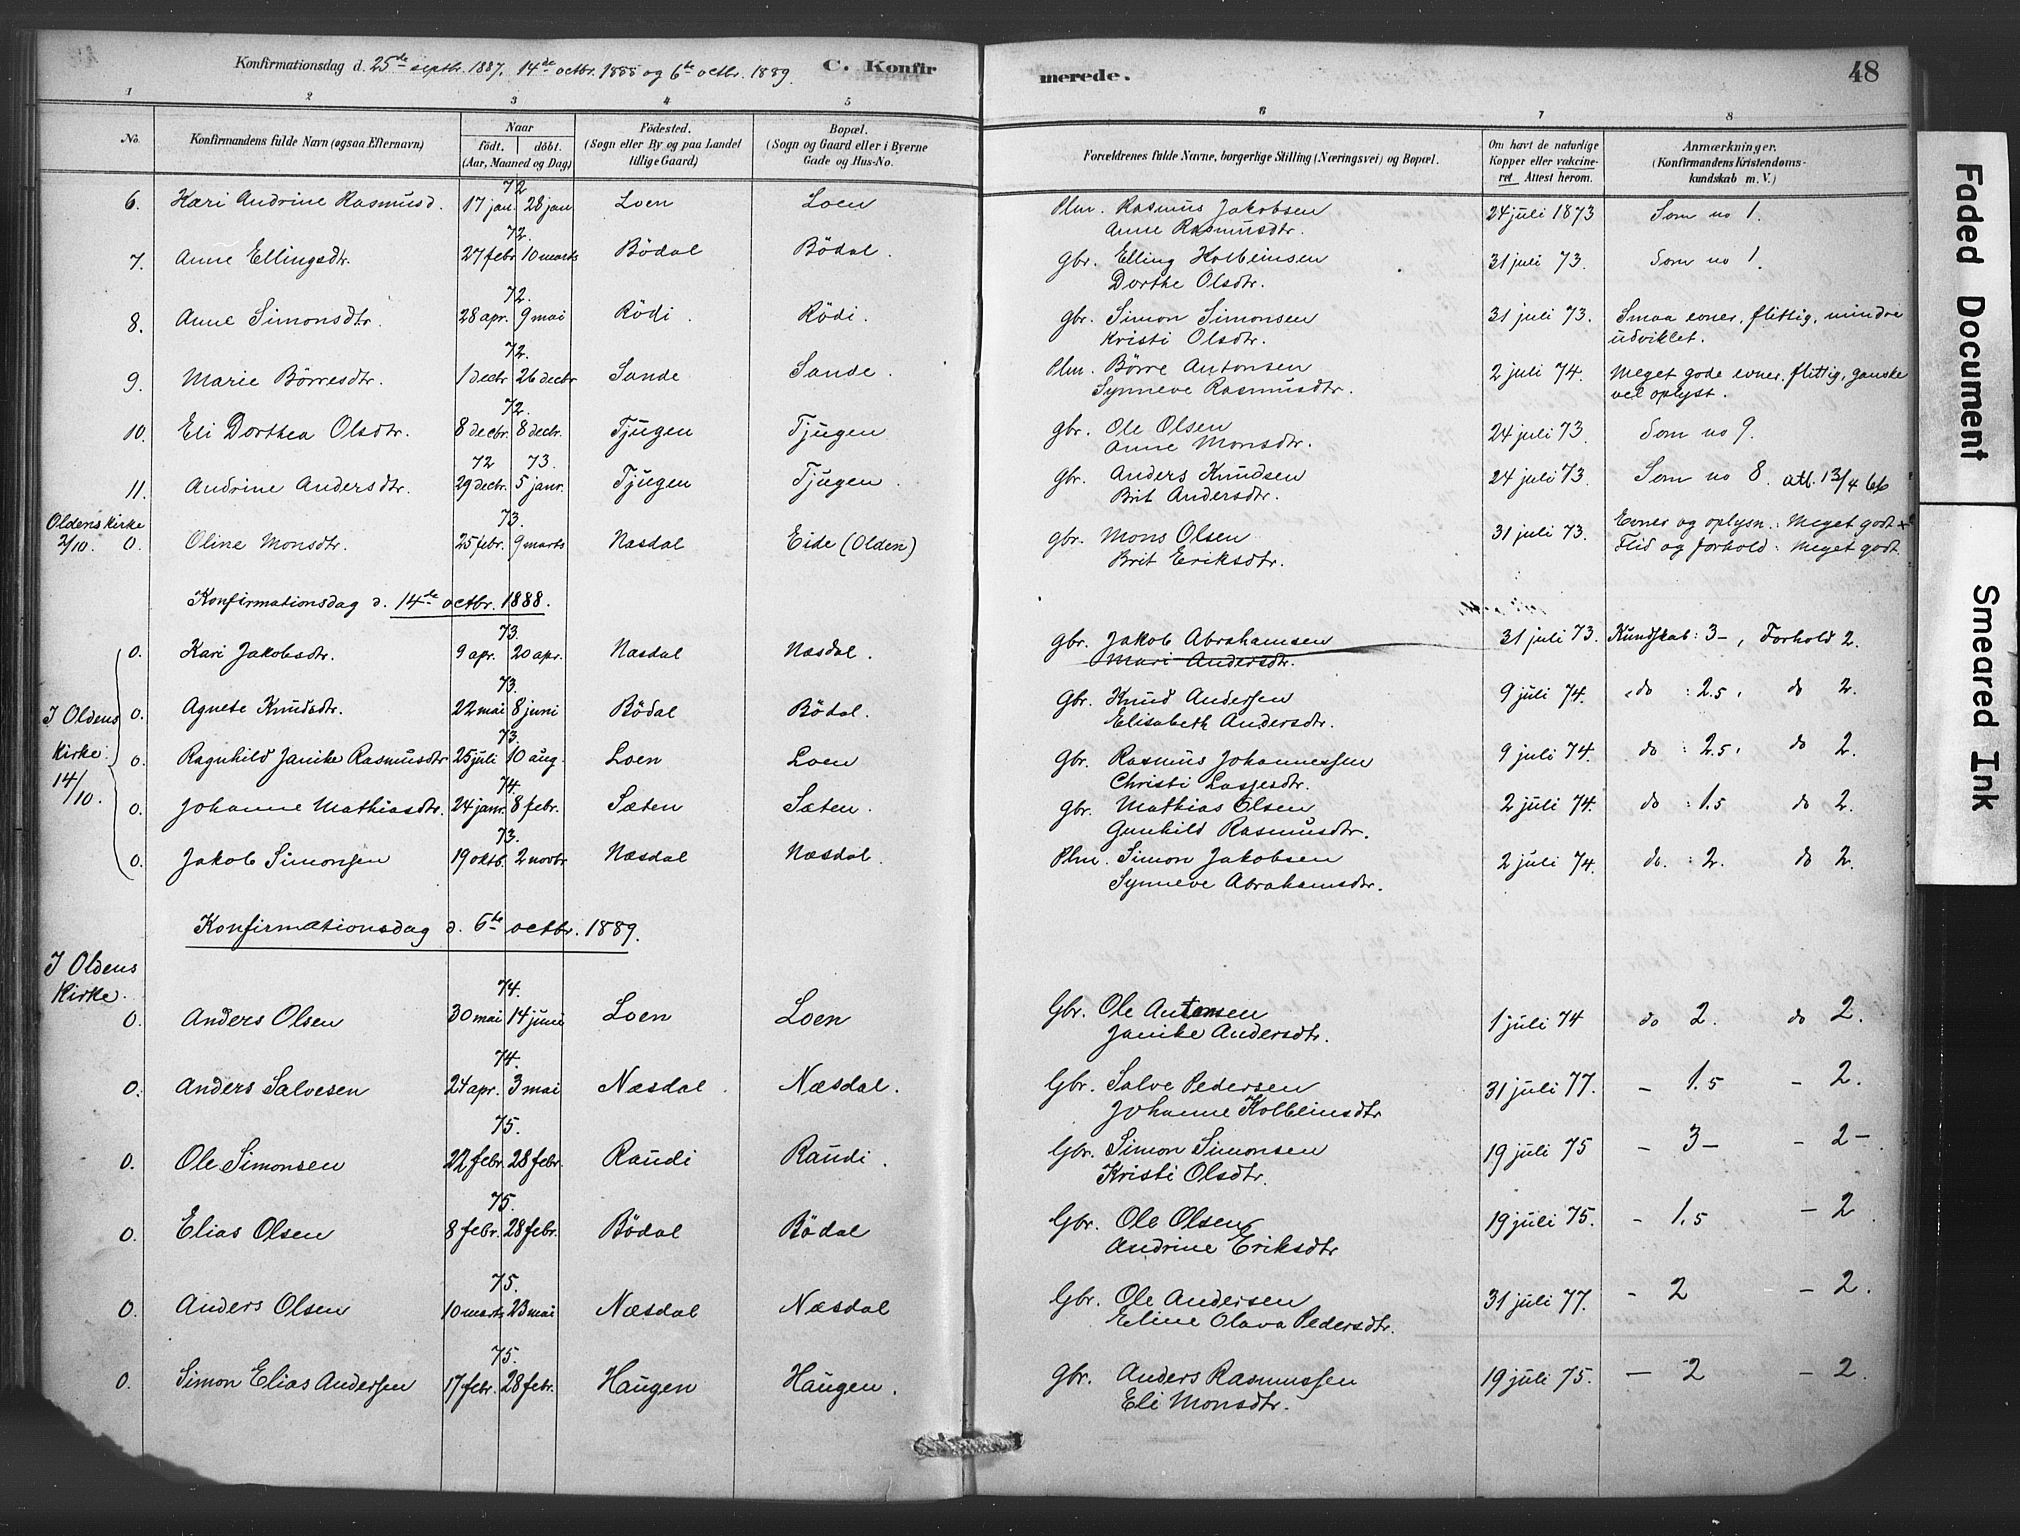 Konfirmationsdag d. 25de septbr. 1887. 14de octbr. 1888 og 6te octbr. 1889. C. Konfir merede. 48
1 2 3 4 5 6 7 8
No. Konfirmandens fulde Navn (ogsaa Efternavn) Naar Födt. döbt. (Aar, Maaned og Dag) Födested. (Sogn eller By og paa Landet tillige Gaard) Bopæl. (Sogn og Gaard eller i Byerne Gade og Hus-No. Forældrenes fulde Navne, borgerlige Stilling (Næringsvei) og Bopæl. Om havt de naturlige Kopper eller vakcineret. Attest herom. Anmærkninger. (Konfirmandens Kristendomskundskab m. V.)
72
6. Kari Andrine Rasmusd. 17 jan. 28 jan Loen Loen Plm. Rasmus Jakobsen 24 juli 1873 Som no 1.
Anne Rasmusdtr.
72.
7. Anne Ellingsdtr. 27 febr 10 marts Bödal Bödal. gbr. Elling Kolbeinsen 31 juli 73. Som no 1.
Dorthe Olsdtr.
72.
8. Anne Simonsdtr. 28 apr. 9 mai Rödi. Rödi. gbr. Simon Simonsen 31 juli 73. Smaa evner, flittig, mindre
Kristi Olsdtr. udviklet.
72.
9. Marie Börresdtr. 1 decbr 26 decbr Sande Sande. Plm. Börre Antonsen 2 juli 74. Meget gode evner, flittig, ganske
Synneve Rasmusdtr. vel oplyst.
72.
10. Eli Dorthea Olsdtr. 8 decbr. 8 decbr. Tjugen Tjugen gbr. Ole Olsen 24 juli 73. Som no 9.
Anne Monsdtr.
72 73.
11. Andrine Andersdtr. 29 decbr. 5 janr. Tjugen Tjugen. gbr. Anders Knudsen 24 juli 73. Som no 8. att. 13/4 66
Brit Andersdtr.
Oldens kirke 73.
2/10. O. Oline Monsdtr. 25 febr. 9 marts Nasdal Eide (Olden) gbr. Mons Olsen 31 juli 73. Evner og oplysn.: Meget godt +
Brit Eriksdtr. Flid og forhold: Meget godt.
Konfirmationsdag d. 14de octbr. 1888.
73.
O. Kari Jakobsdtr. 9 apr. 20 apr. Nasdal Næsdal. gbr. Jakob Abrahamsen 31 juli 73. Kundskab: 3-, Forhold 2.
Mari Andersdtr.
73.
I Oldens O. Agnete Knudsdtr. 22 mai 8 juni Bödal Bödal. Gbr. Knud Andersen 9 juli 74. do : 2.5, do 2.
Elisabeth Andersdtr.
Kirke 73.
O. Ragnhild Janike Rasmusdtr 25 juli 10 aug. Loen Loen Gbr. Rasmus Johannessen 9 juli 74. do : 2.5, do 2.
Christi Lassesdtr.
14/10. 74.
O. Johanne Mathiasdtr. 24 janr. 8 febr. Sæten Sæten. gbr. Mathias Olsen 2 juli 74. do : 1.5 do 2.
Gunhild Rasmusdtr.
73.
O. Jakob Simonsen 19 oktb. 2 novbr Næsdal Næsdal. Plm. Simon Jakobsen 2 juli 74. do. : 2. do 2.
Synneve Abrahamsdtr.
Konfirmationsdag d. 6te octbr. 1889.
I Oldens
Kirke. 74.
O. Anders Olsen 30 mai 14 juni Loen Loen Gbr. Ole Antonsen 1 juli 74 do 2. do 2.
Janike Andersdtr.
74.
O. Anders Salvesen 24 apr. 3 mai Næsdal. Næsdal. Gbr. Salve Pedersen 31 juli 77. - 1.5 - 2.
Johanne Kolbeinsdtr
75.
O. Ole Simonsen 22 febr. 28 febr. Raudi Raudi. Gbr. Simon Simonsen 19 juli 75 - 3- - 2-
Kristi Olsdtr.
75.
O. Elias Olsen 8 febr. 28 febr. Bödal Bödal Gbr. Ole Olsen 19 juli 75. - 1.5 - 2
Andrine Eriksdtr
75.
O. Anders Olsen 10 marts 23 mai Næsdal Næsdal Gbr. Ole Andersen 31 juli 77. - 2 - 2.
Eline Olava Pedersdtr.
75.
O. Simon Elias Andersen 17 febr. 28 febr. Haugen Haugen. Gbr. Anders Rasmussen 19 juli 75. - 2 - 2.
Eli Monsdtr.
Faded Document
Smeared Ink